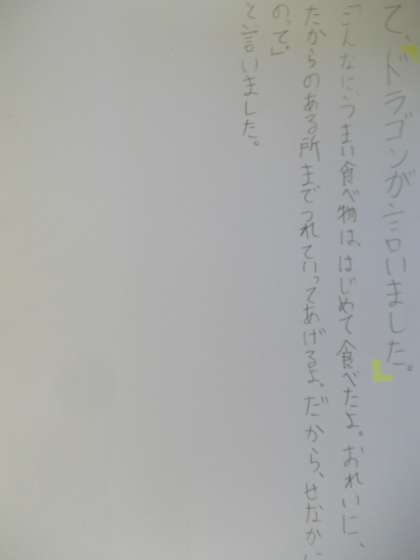 て、ドラゴンが言いました。
「こんなに、うまい食べ物は、はじめて食べたよ。おれいに、
たからのある所までつれていってあげるよ。だから、せなかに
のって」
と言いました。